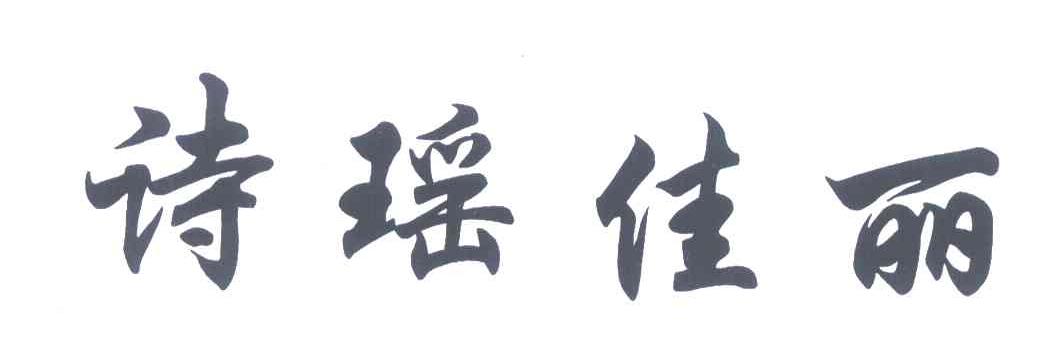 诗瑶佳丽